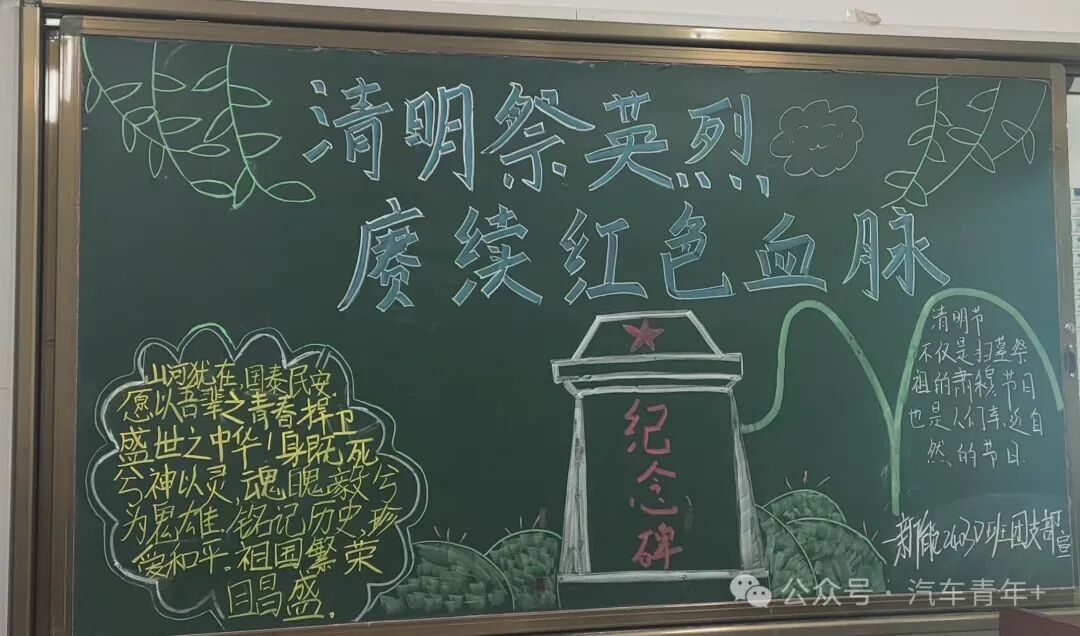 清明祭英烈
赓续红色血脉
山河犹在,国泰民安
愿以吾辈之青春捍卫
盛世之中华!身既死
兮神以灵,魂魄毅兮
为鬼雄.铭记历史珍
爱和平.祖国繁荣
日昌盛.
纪念碑
清明节
不仅是扫墓祭
祖的肃穆节日
也是人们亲近自
然的节日.
班团支部
宣
公众号·汽车青年+